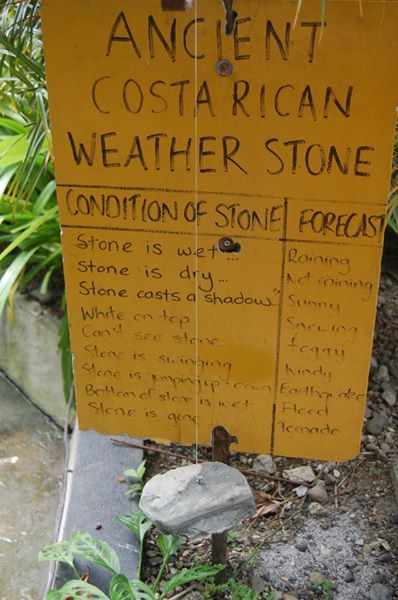 ANCIENT
COSTA RICAN
WEATHER STONE
CONDITION OF STONE FORECAST
Stone is wet... Raining
Stone is dry... Not raining
Stone casts a shadow.. Sunny
White on top Snowing
Can't see stone foggy
Stone is swinging Windy
Stone is jumping up + down Earthquake
Bottom of stone is wet Flood
Stone is gone Tornado